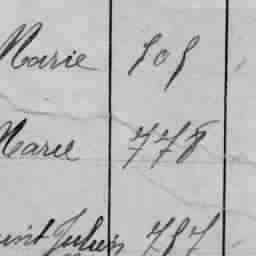 Marie 505
Marie 778
Saint Julien 757